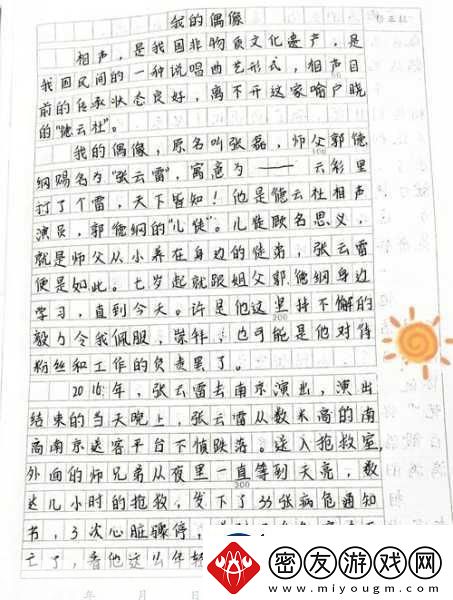 我的偶像
相声，是我国非物质文化遗产，是
我国民间的一种说唱曲艺形式，相声目
前的传承状态良好，离不开这家喻户晓
的“德云社”。
我的偶像，原名叫张磊，师父郭德
100
纲赐名为“张云雷”，寓意为——云彩里
打了个雷，天下皆知！他是德云社相声
演员，郭德纲的“儿徒”。儿徒顾名思义，
就是师父从小养在身边的徒弟，张云雷
便是如此。七岁起就跟姐父郭德纲身边
学习，直到今天。许是他这坚持不懈的
200
毅力令我佩服，崇拜，也可能是他对待
粉丝和工作的负责罢了。
2016年，张云雷去南京演出，演出
结束的当天晚上，张云雷从数米高的南
高南京送客平台下愤跌落。送入抢救室，
外面的师兄弟从夜里一直等到天亮，数
300
达几小时的抢救，发下了33张病危通知
书，3次心脏骤停，
亡了，看他这么年轻
年 月
密友游戏网
www.miyougm.com